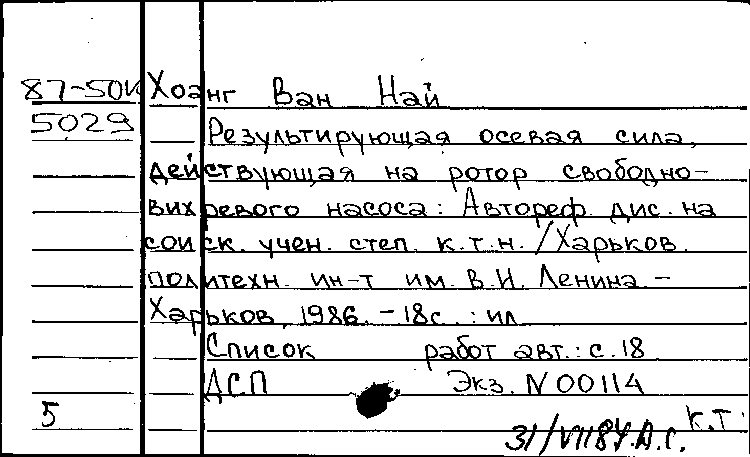 87-50И Хоанг Ван Най
5029 Результирующая осевая сила,
действующая на ротор свободно-
вихревого насоса: Автореф. дис. на
соиск. учен. степ. к.т.н. /Харьков.
политехн. ин-т им. В.И. Ленина. -
Харьков, 1986. - 18с. : ил
Список работ авт.: с. 18
ДСП Экз. N 00114
5 к.т.